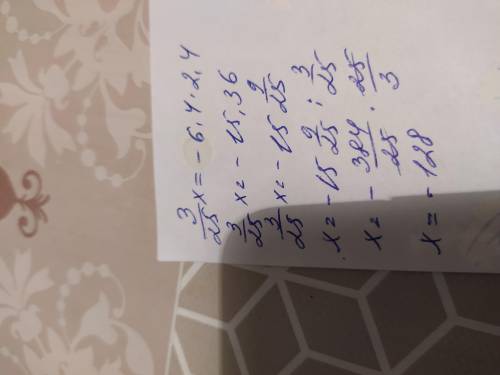 3/25 x = - 6,4 · 2,4
3/25 x = - 15,36
3/25 x = - 15 9/25
x = - 15 9/25 : 3/25
x = - 384/25 · 25/3
x = - 128